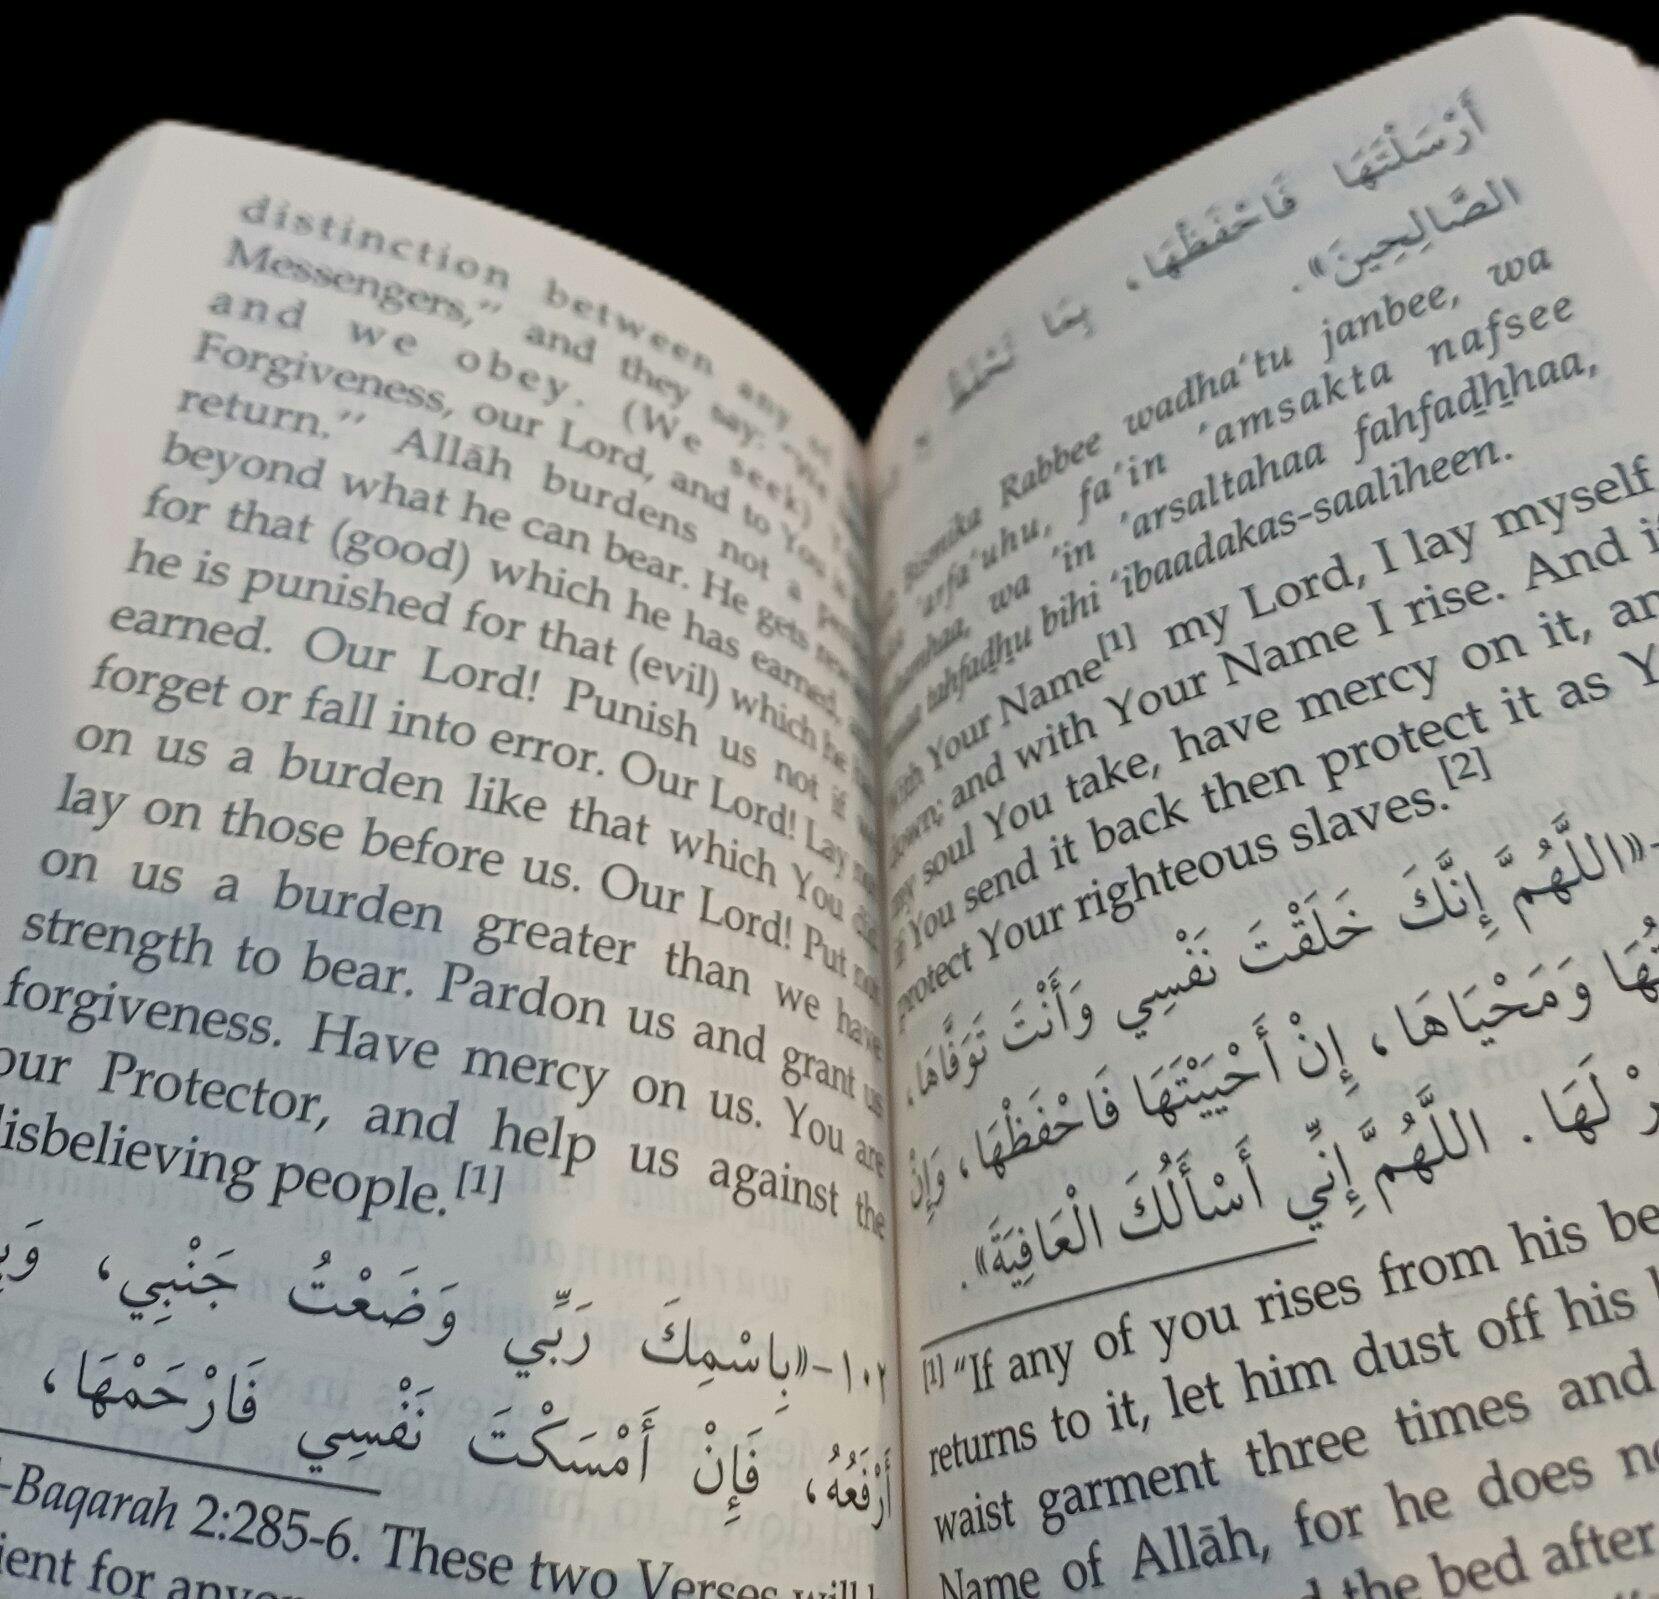 distinction between any of
Messengers," and they say: "We
and we obey. (We seek)
Forgiveness, our Lord, and to You is
return." Allāh burdens not a
beyond what he can bear. He gets
for that (good) which he has earned,
he is punished for that (evil) which he
earned. Our Lord! Punish us not if
forget or fall into error. Our Lord! Lay not
on us a burden like that which You did
lay on those before us. Our Lord! Put not
on us a burden greater than we have
strength to bear. Pardon us and grant us
forgiveness. Have mercy on us. You are
our Protector, and help us against the
disbelieving people.[1]
١٠٢-«بِاسْمِكَ رَبِّي وَضَعْتُ جَنْبِي،
أَرْفَعُهُ، فَإِنْ أَمْسَكْتَ نَفْسِي فَارْحَمْهَا،
-Baqarah 2:285-6. These two Verses will
for
أَرْسَلْتَهَا فَاحْفَظْهَا، بِمَا تَحْفَظُ
الصَّالِحِينَ».
Bismika Rabbee wadha'tu janbee, wa
'arfa'uhu, fa'in 'amsakta nafsee
wa 'in 'arsaltahaa fahfadhhaa,
tahfadhu bihi 'ibaadakas-saaliheen.
With Your Name[1] my Lord, I lay myself
down; and with Your Name I rise. And if
my soul You take, have mercy on it, and
if You send it back then protect it as You
protect Your righteous slaves.[2]
-«اللَّهُمَّ إِنَّكَ خَلَقْتَ نَفْسِي وَأَنْتَ تَوَفَّاهَا،
وَمَحْيَاهَا، إِنْ أَحْيَيْتَهَا فَاحْفَظْهَا، وَإِنْ
لَهَا. اللَّهُمَّ إِنِّي أَسْأَلُكَ الْعَافِيَةَ».
[1] "If any of you rises from his
returns to it, let him dust off his
waist garment three times and
Name of Allāh, for he does
the bed after